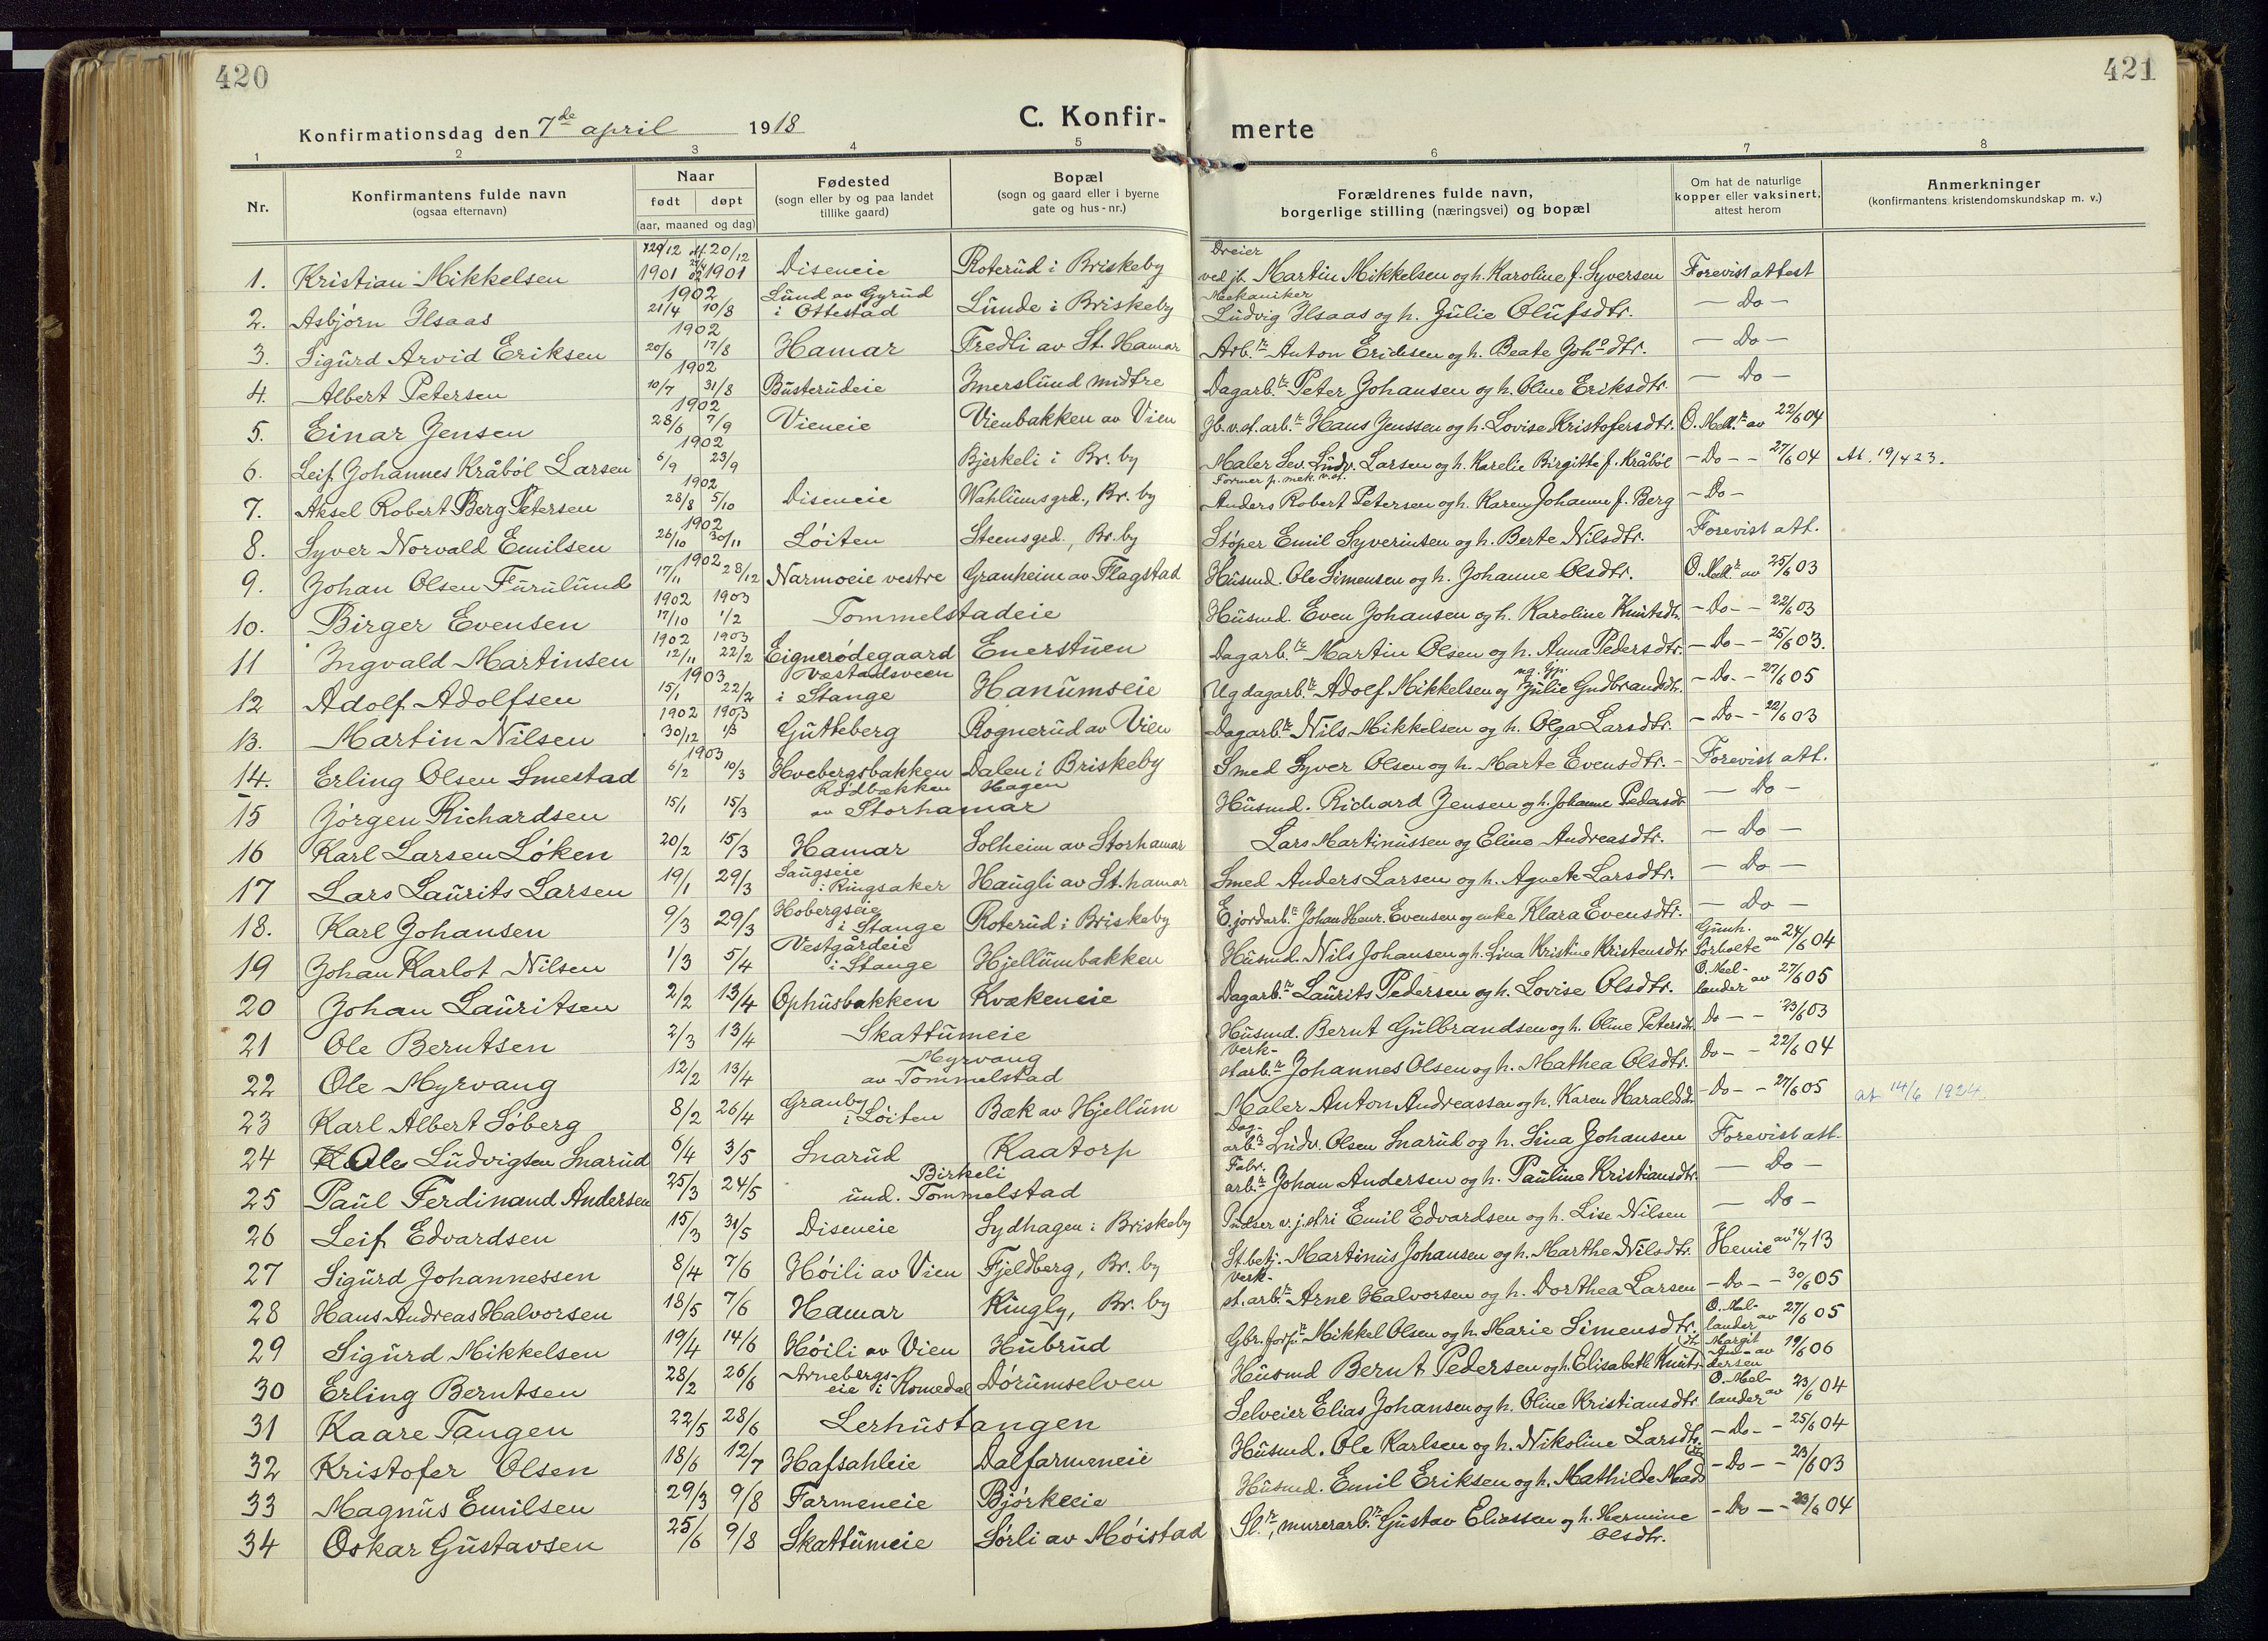 420
421
Konfirmationsdag den 7de april 1918
C. Konfir-
merte
1 2 3 4 5 6 7 8
Nr.
Konfirmantens fulde navn
(ogsaa efternavn)
Naar
født døpt
(aar, maaned og dag)
Fødested
(sogn eller by og paa landet
tillike gaard)
Bopæl
(sogn og gaard eller i byerne
gate og hus-nr.)
Forældrenes fulde navn,
borgerlige stilling (næringsvei) og bopæl
Om hat de naturlige
kopper eller vaksinert,
attest herom
Anmerkninger
(konfirmantens kristendomskundskap m. v.)
1. Kristian Mikkelsen 1901 1901 Diseneie Roterud i Briskeby Dreier ved jb. Martin Mikkelsen og h. Karoline f. Syversen Forevist attest
2. Asbjørn Ilsaas 1902 21/4 10/8 Lund av Gyrud i Ottestad Lunde i Briskeby Mekaniker Ludvig Ilsaas og h. Julie Olufsdtr. - Do -
3. Sigurd Arvid Eriksen 1902 20/6 17/8 Hamar Fredli av St. Hamar Arb.r Anton Eriksen og h. Beate Johsdtr. - Do -
4. Albert Petersen 1902 10/7 31/8 Busterudeie Imerslund midtre Dagarb.r Peter Johansen og h. Oline Eriksdtr. - Do -
5. Einar Jensen 1902 28/6 7/9 Vieneie Vienbakken av Vien Jb.v.st.arb.r Hans Jenssen og h. Lovise Kristofersdtr. O. Mell.r av 22/6 04
6. Leif Johannes Kråbøl Larsen 1902 6/9 23/9 Bjerkeli i Br. by Maler Sev. Ludv. Larsen og h. Karelie Birgitte f. Kråbøl - Do - - 27/6 04 At. 19/4 23.
7. Aksel Robert Berg Petersen 1902 28/8 5/10 Diseneie Wahlumsgrd., Br. by Former p. mek. v.st. Anders Robert Petersen og h. Karen Johanne f. Berg - Do -
8. Syver Norvald Emilsen 1902 26/10 30/11 Løiten Steensgrd., Br. by Støper Emil Syverinsen og h. Berte Nilsdtr. Forevist att.
9. Johan Olsen Furulund 1902 17/11 28/12 Narmoeie vestre Granheim av Flagstad Husmd. Ole Simensen og h. Johanne Olsdtr. O. Mell.r av 25/6 03
10. Birger Evensen 1902 1903 17/10 1/2 Tommelstadeie Husmd. Even Johansen og h. Karoline Knutsdtr. - Do - - 22/6 03
11 Ingvald Martinsen 1902 1903 12/11 22/2 Eignerødegaard Enerstuen Dagarb.r Martin Olsen og h. Anna Pedersdtr. - Do - - 25/6 03.
12 Adolf Adolfsen 1903 15/1 22/2 Væstadsveen i Stange Hanumseie Ug dagarb.r Adolf Mikkelsen og ug. tjp. Julie Gudbrandsdtr. - Do - - 27/6 05
13. Martin Nilsen 1902 1903 30/12 1/3 Gutteberg Rognerud av Vien Dagarb.r Nils Mikkelsen og h. Olga Larsdtr. - Do - - 22/6 03
14. Erling Olsen Smestad 1903 6/2 10/3 Hvebergsbakken Dalen i Briskeby Smed Syver Olsen og h. Marte Evensdtr. - Forevist att.
15 Jørgen Richardsen 15/1 15/3 Rødbækken Hagen av Storhamar Husmd. Richard Jensen og h. Johanne Pedersdtr. - Do -
16 Karl Larsen Løken 20/2 15/3 Hamar Solheim av Storhamar Lars Martinussen og Eline Andreasdtr. - Do -
17 Lars Laurits Larsen 19/1 29/3 Saugseie i Ringsaker Haugli av St. hamar Smed Anders Larsen og h. Agnete Larsdtr. - Do -
18. Karl Johansen 9/3 29/3 Hobergseie i Stange Roterud i Briskeby E. jordarb.r Johan Henr. Evensen og enke Klara Evensdtr. - Do -
19 Johan Karlot Nilsen 1/3 5/4 Vestgårdeie i Stange Hjellumbakken Husmd. Nils Johansen og h. Lina Kristine Kristensdtr Gunh. Sørholte av 24/6 04
20 Johan Lauritsen 2/2 13/4 Ophusbakken Kvækeneie Dagarb.r Laurits Pedersen og h. Lovise Olsdtr. O. Mel- lander av 27/6 05
21 Ole Berntsen 2/3 13/4 Skattumeie Husmd. Bernt Gulbrandsen og h. Oline Petersdtr. Do - - 23/6 03
22 Ole Myrvang 12/2 13/4 Myrvang av Tommelstad Verk- starb.r Johannes Olsen og h. Mathea Olsdtr. Do - - 22/6 04
23 Karl Albert Søberg 8/2 26/4 Granby i Løiten Bæk av Hjellum Maler Anton Andreassen og h. Karen Haraldsdtr. - Do - - 27/6 05 at 14/6 1924
24 Ole Ludvigsen Snarud 6/4 3/5 Snarud Kaatorp Dag- arb.r Ludv. Olsen Snarud og h. Lina Johansen Forevist att.
25 Paul Ferdinand Andersen 25/3 24/5 Birkeli und. Tommelstad Fabr. arb.r Johan Andersen og h. Pauline Kristiansdtr. - Do -
26 Leif Edvardsen 15/3 31/5 Diseneie Sydhagen i Briskeby Pudser v. j.stri Emil Edvardsen og h. Lise Nilsen - Do -
27 Sigurd Johannessen 8/4 7/6 Høili av Vien Fjeldberg, Br. by St.betj. Martinus Johansen og h. Marthe Nilsdtr. Henie av 16/7 13
28 Hans Andreas Halvorsen 18/5 7/6 Hamar Kingly, Br. by Verk- st. arb.r Arne Halvorsen og h. Dorthea Larsen - Do - - 30/6 05
29 Sigurd Mikkelsen 19/4 14/6 Høili av Vien Hubrud Gbr. forp.r Mikkel Olsen og h. Marie Simensdtr. O. Mel- lander av 27/6 05
30 Erling Berntsen 28/2 26/6 Arnebergs- eie i Romedal Dørumselven Husmd Bernt Pedersen og h. Elisabeth Knutsdtr. Margit An- dersen av 19/6 06
31 Kaare Tangen 22/5 28/6 Lerhustangen Selveier Elias Johansen og h. Oline Kristiansdtr. O. Mel- lander av 23/6 04
32 Kristofer Olsen 18/6 12/7 Hafsahleie Dalfarmeneie Husmd. Ole Karlsen og h. Nikoline Larsdtr. - Do - - 25/6 04
33 Magnus Emilsen 29/3 9/8 Farmeneie Bjørkeeie Husmd. Emil Eriksen og h. Mathilde Madsdtr. - Do - - 23/6 03
34 Oskar Gustavsen 25/6 9/8 Skattumeie Sørli av Møistad Sl.r, murerarb.r Gustav Eliassen og h. Hermine Olsdtr. - Do - - 23/6 04